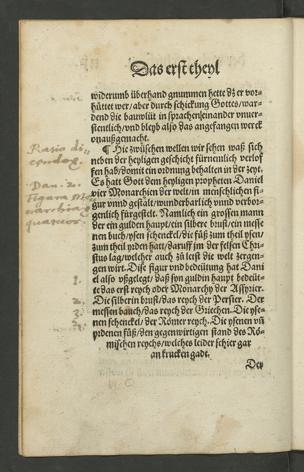 Das erst theyl
widerumb überhand gnummen hette dz er vor-
hüttet wer/ aber durch schickung Gottes/ war-
dend die bauwlüt in sprachen seinander vnuer-
stentlich/ vnd bleyb also das angefangen werck
vnaußgemacht.
¶ Hie zwüschen wellen wir sehen waß sich
neben der heyligen geschicht fürnenlich verlof
fen hab/ domit ein ordnung behalten in der zeyt.
Es hatt Gott dem heyligen propheten Daniel
vier Monarchien der welt/ in menschlichen fi-
gur vnnd gestalt/ wunderbarlich vnnd verbor-
genlich fürgestelt. Namlich ein grossen mann
der ein gulden haupt/ ein silbere brust/ ein messe
nen buch/ ysen schenckel/ die füß zum theil ysen/
zum theil yrden hatt/ daruff im der felsen Chri-
stus lag/ welcher auch zů letst die welt zergen-
gen wirt. Dise figur vnd bedeütung hat Dani
el also vßgelegt/ daß syn guldin haupt bedeü-
tet das erst reych oder Monarchy der Assyrier.
Die silberin brust/ das reych der Persier. Der
messen bauch/ das reych der Griechen. Die yse-
nen schenckel/ der Römer reych. Die ysenen vñ
yrdenen füß/ den gegenwirtigen stand des Rö-
mischen reychs/ welches leider schier gar
an krucken gadt.
Der
Ratio di-
cendorum
Dan. 2.
figura Mo
narchiarum
quatuor.
1.
2.
3.
4.